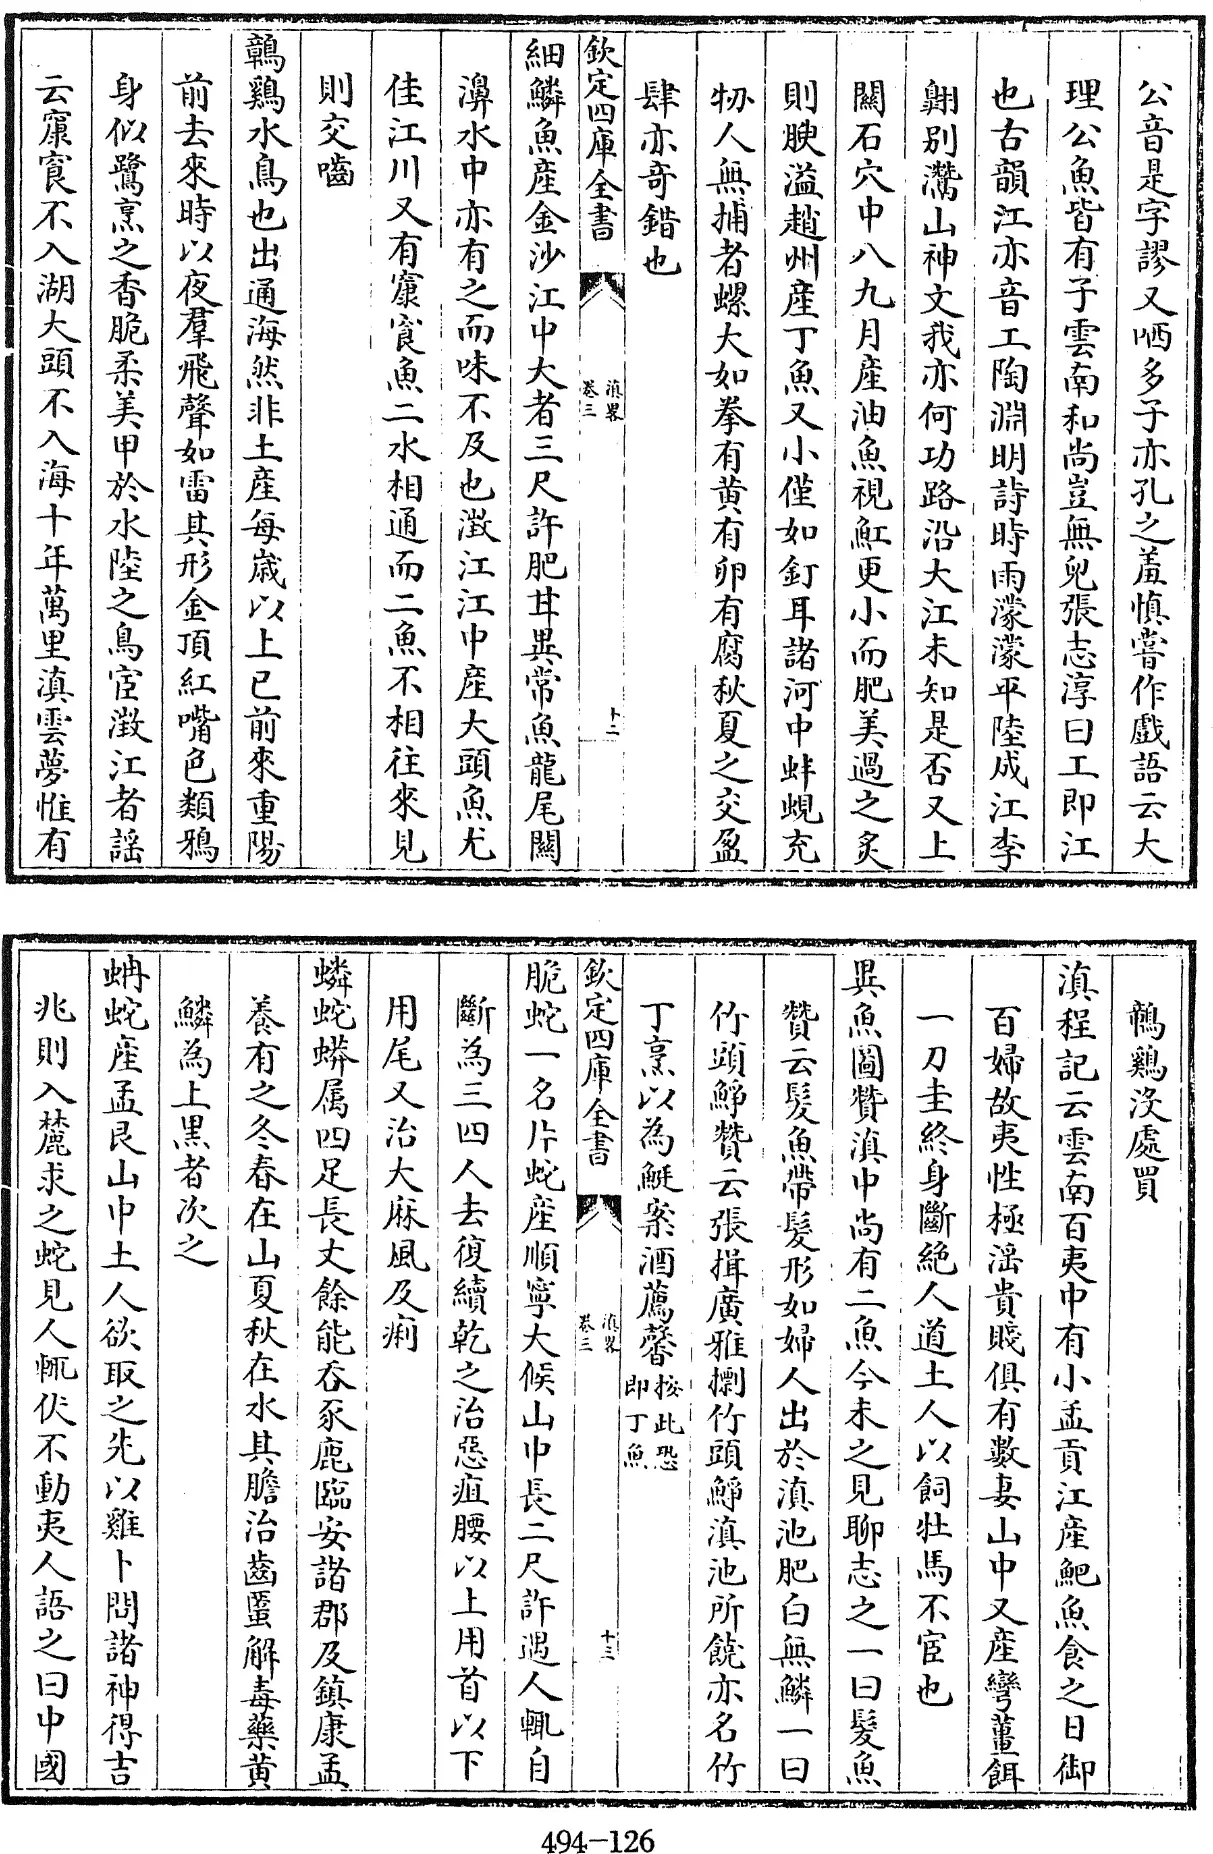 公音是字謬又哂多子亦孔之羞慎嘗作戲語云大
理公魚皆有子雲南和尚豈無兒張志淳曰工即江
也古韻江亦音工陶淵明詩時雨濛濛平陸成江李
翺別灊山神文我亦何功路沿大江未知是否又上
關石穴中八九月產油魚視魟更小而肥美過之炙
則腴溢趙州產丁魚又小僅如釘耳諸河中蚌蜆充
牣人無捕者螺大如拳有黄有卵有腐秋夏之交盈
肆亦奇錯也
欽定四庫全書
滇畧
卷三
十二
細鱗魚產金沙江中大者三尺許肥甘異常魚龍尾關
濞水中亦有之而味不及也澂江江中產大頭魚尤
佳江川又有𩷕魚二水相通而二魚不相往來見
則交嚙
鶄鷄水鳥也出通海然非土產每歳以上已前來重陽
前去來時以夜羣飛聲如雷其形金頂紅嘴色類鴉
身似鷺烹之香脆柔美甲於水陸之鳥宦澂江者謡
云不入湖大頭不入海十年萬里滇雲夢惟有
鶄鷄没處買
滇程記云雲南百夷中有小孟貢江產䰾魚食之日御
百婦故夷性極淫貴賤俱有數妻山中又產彎薑餌
一刀圭終身斷絶人道土人以飼牡馬不宦也
異魚圖贊滇中尚有二魚今未之見聊志之一曰髪魚
贊云髪魚帶髪形如婦人出於滇池肥白無鱗一曰
竹頭䱐贊云張揖廣雅㯿竹頭䱐滇池所饒亦名竹
丁烹以為鯅案酒薦馨
按此恐
即丁魚
欽定四庫全書
滇畧
卷三
十三
脆蛇一名片蛇產順寧大候山中長二尺許遇人輒自
斷為三四人去復續乾之治惡疽腰以上用首以下
用尾又治大麻風及痢
蟒蛇蟒属四足長丈餘能吞豕鹿臨安諸郡及鎮康孟
養有之冬春在山夏秋在水其膽治齒䘌解毒藥黄
鱗為上黒者次之
蚺蛇產孟艮山中土人欲取之先以雞卜問諸神得吉
兆則入麓求之蛇見人輒伏不動夷人語之曰中國
494-126